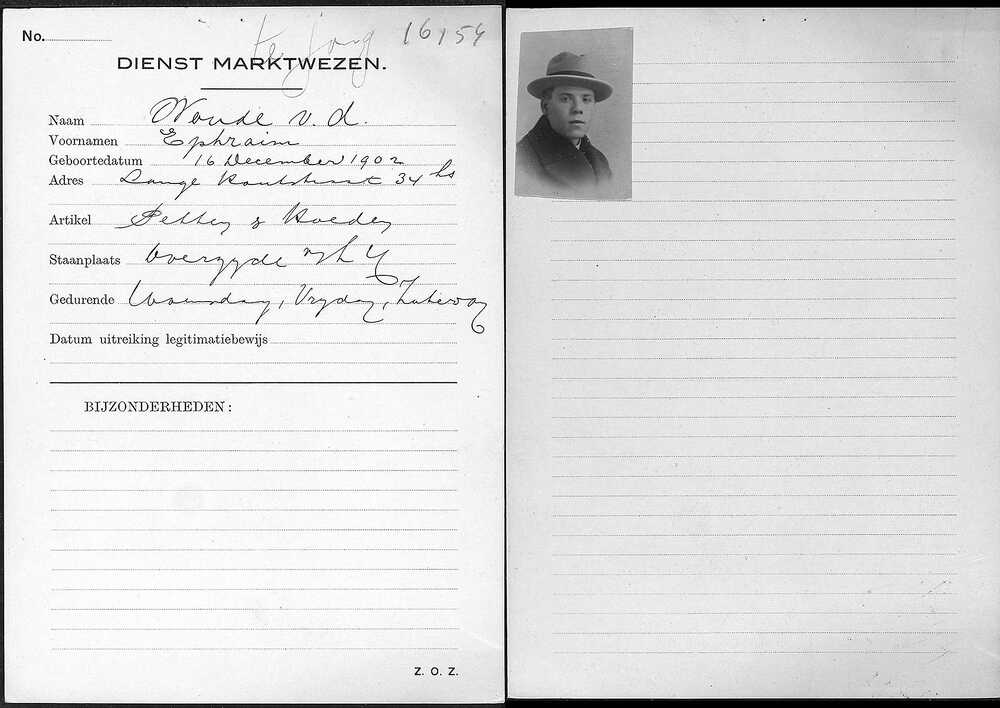 No. 16154
te jong
DIENST MARKTWEZEN.
Naam Woude v. d.
Voornamen Ephraim
Geboortedatum 16 December 1902
Adres Lange Houtstraat 34 hs
Artikel Petten & Hoeden
Staanplaats Overzyde
Gedurende Woensdag, Vrydag, Zaterdag
Datum uitreiking legitimatiebewijs
BIJZONDERHEDEN:
Z. O. Z.